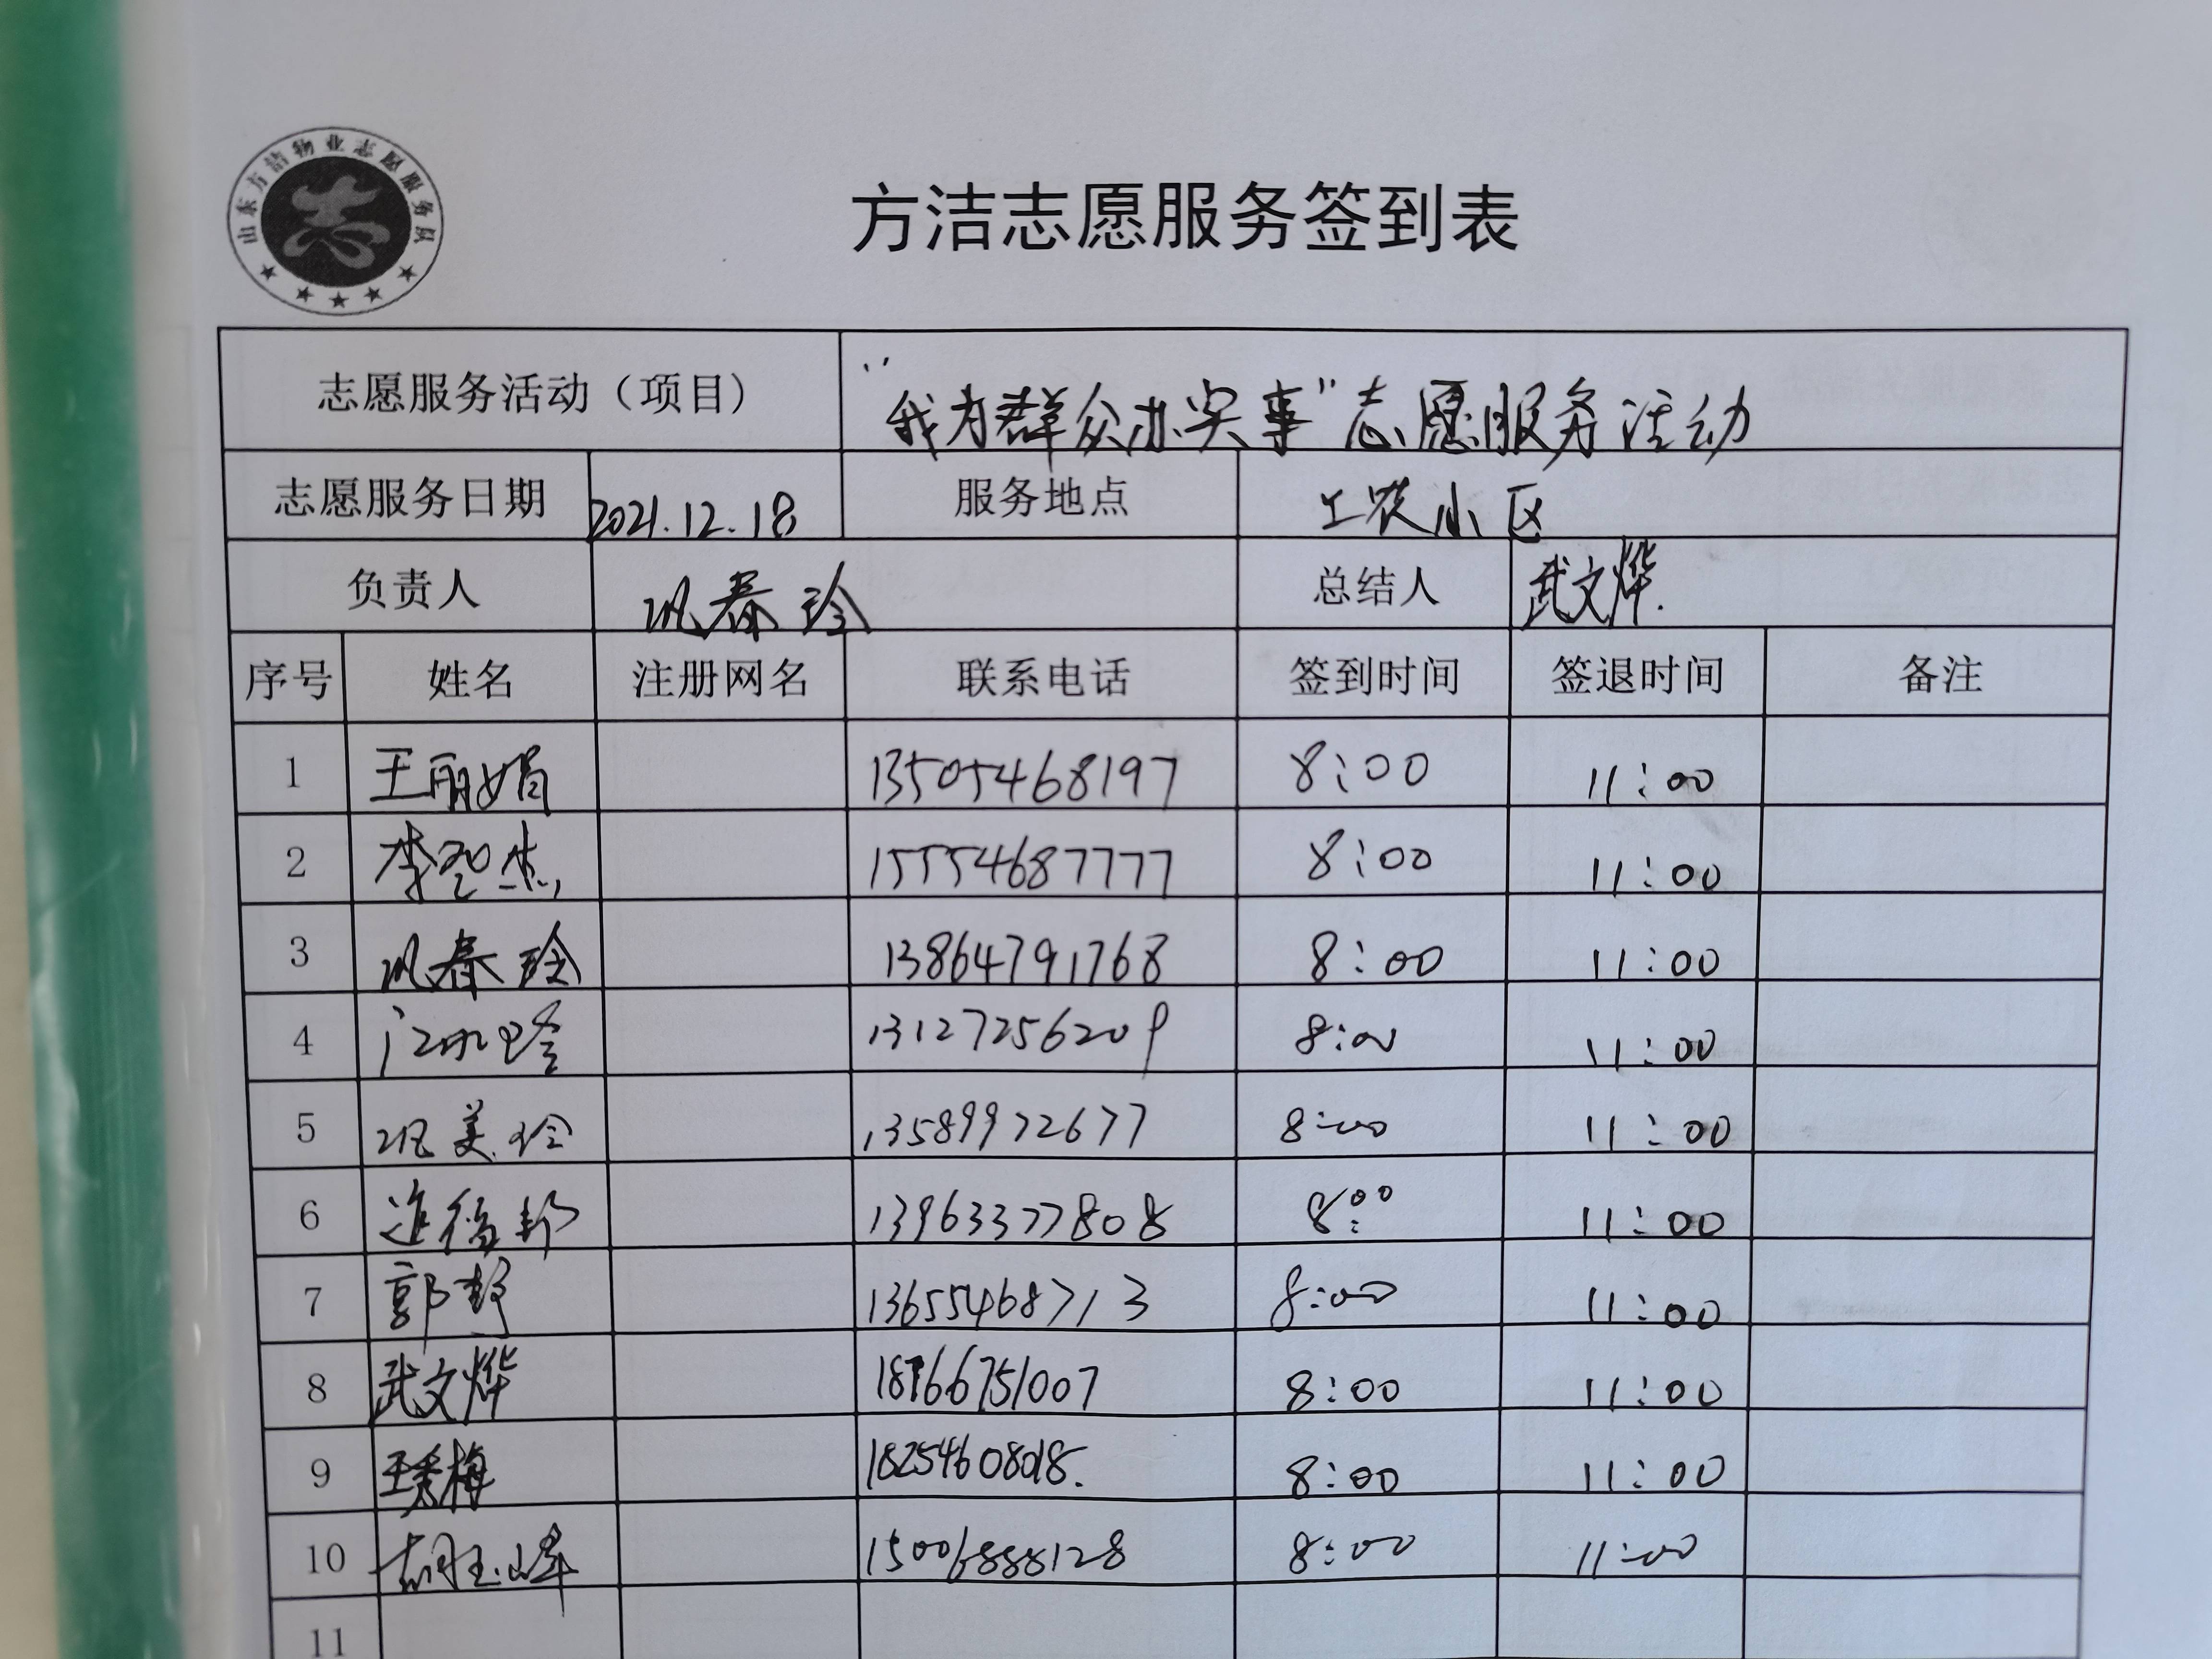 山东方洁物业志愿服务队
方洁志愿服务签到表
志愿服务活动（项目） "我为群众办实事"志愿服务活动
志愿服务日期 2021.12.18 服务地点 工农小区
负责人 巩春玲 总结人 武文烨
序号 姓名 注册网名 联系电话 签到时间 签退时间 备注
1 王丽娟 13505468197 8:00 11:00
2 李智杰 15554687777 8:00 11:00
3 巩春玲 13864791768 8:00 11:00
4 13127256209 8:00 11:00
5 巩美玲 13589972677 8:00 11:00
6 13963377808 8:00 11:00
7 郭 13655468713 8:00 11:00
8 武文烨 18766751007 8:00 11:00
9 王秀梅 18254608018. 8:00 11:00
10 胡玉峰 15006888128 8:00 11:00
11